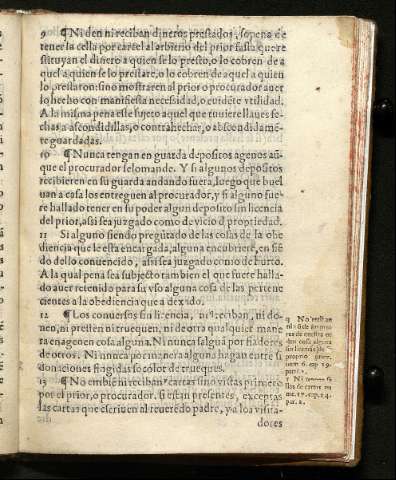 9 ¶ Ni den ni reciban dineros prestados, so pena de
tener la cella por carcel al arbitrio del prior fasta que re
stituyan el dinero a quien se lo presto, o lo cobren de a
quel a quien se lo prestare, o lo cobren de aquel a quien
lo prestaron: sino mostraren al prior o procurador auer
lo hecho con manifiesta necessidad, o euidẽte vtilidad.
A la misma pena este sujeto aquel que tuuiere llaues fe-
chas a ascondidillas, o contrahechas, o abscondidamẽ-
te guardadas.
10 ¶ Nunca tengan en guarda depositos agenos aũ-
que el procurador selo mande. Y si algunos depositos
recibieren en su guarda andando fuera, luego que buel
uan a casa los entreguen al procurador, y si alguno fue-
re hallado tener en su poder algun deposito sin licencia
del prior, assi sea juzgado como de vicio de propiedad.
11 Si alguno siendo pregũtado de las cosas de la obe
diencia que le esta encargada, alguna encubriere, en siẽ
do dello conuencido, assi sea juzgado como de hurto.
A la qual pena sea subjecto tambien el que fuere halla-
do auer retenido para su vso alguna cosa de las pertene
cientes a la obediencia que a dexado.
12 ¶ Los conuersos sin licencia, ni reciban, ni do-
nen, ni presten ni truequen, ni de otra qualquier mane
ra enagenen cosa alguna. Ni nunca salgã por fiadores
de otros. Ni nunca por manera alguna hagan entre si
donaciones fingidas so color de trueques.
13 ¶ No embiẽ ni reciban cartas sino vistas primero
por el prior, o procurador. si estan presentes, exceptas
las cartas que escriuen al reuerẽdo padre, y a los visita-
dores
q No
de nuestra or
den cosa alguna
sin licencia de
proprio prior.